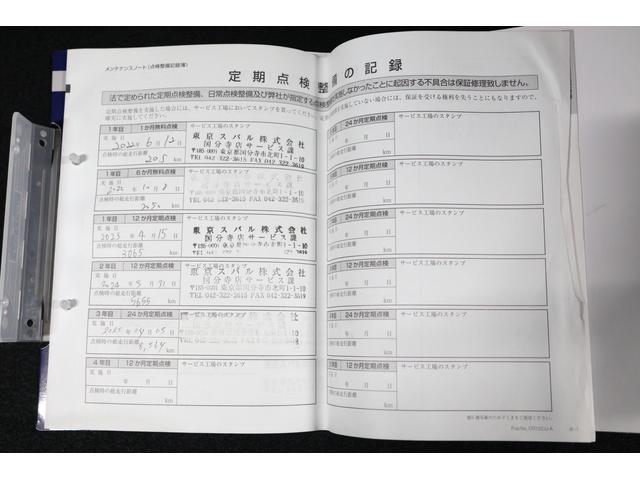 メンテナンスノート(点検整備記録簿)
定期点検整備の記録
法で定められた定期点検整備、日常点検整備及び弊社が指定する点検
実施しなかったことに起因する不具合は保証修理致しません。
定期点検整備を実施した場合には、サービス工場においてスタンプを
確実に実施してください。
実施していない場合には、保証を受ける権利を失うことにもなりますので、
1年目 1か月無料点検 サービス工場のスタンプ
実施日 2022年6月12日
点検時の総走行距離
205 km
東京スバル株式会社
国分寺店サービス課
〒185-0001 東京都国分寺市北町1-1-10
TEL 042-322-3615 FAX 042-322-3519
1年目 6か月無料点検 サービス工場のスタンプ
実施日 2022年10月8日
点検時の総走行距離
km
東京スバル株式会社
国分寺店サービス課
〒185-0001 東京都国分寺市北町1-1-10
TEL 042-322-3615 FAX 042-322-3519
1年目 12か月定期点検 サービス工場のスタンプ
実施日 2023年4月15日
点検時の総走行距離
3065 km
東京スバル株式会社
国分寺店サービス課
〒185-0001 東京都国分寺市北町1-1-10
TEL 042-322-3615 FAX 042-322-3519
2年目 12か月定期点検 サービス工場のスタンプ
実施日 2024年5月31日
点検時の総走行距離
5656 km
東京スバル株式会社
国分寺店サービス課
〒185-0001 東京都国分寺市北町1-1-10
TEL 042-322-3615 FAX 042-322-3519
3年目 24か月定期点検 サービス工場のスタンプ
実施日 2025年04月05日
点検時の総走行距離
8,564 km
4年目 12か月定期点検 サービス工場のスタンプ
実施日 年 月 日
点検時の総走行距離
km
24か月定期点検 サービス工場のスタンプ
年 月 日
km
12か月定期点検 サービス工場のスタンプ
年 月 日
km
24か月定期点検 サービス工場のスタンプ
年 月 日
km
12か月定期点検 サービス工場のスタンプ
年 月 日
km
24か月定期点検 サービス工場のスタンプ
年 月 日
km
12か月定期点検 サービス工場のスタンプ
年 月 日
km